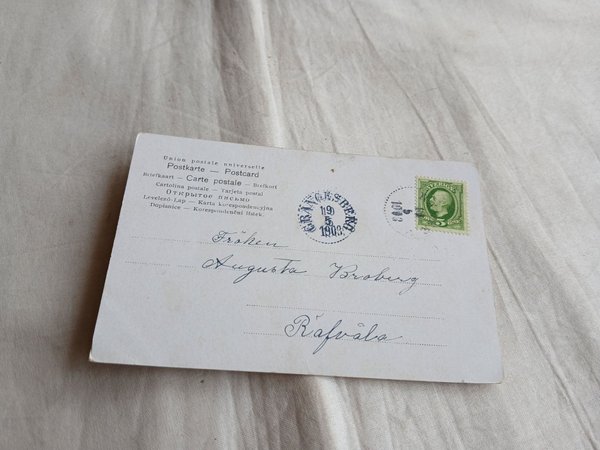 Union postale universelle
Postkarte — Postcard
Briefkaart — Carte postale — Brefkort
Cartolina postale — Tarjeta postal
Открытое письмо
Levelező-Lap — Karta korespondencyjna
Dopisnice — Korespondenční lístek.
GRÄNGESBERG
19
5
1903
1903
SVERIGE
5
Fröken
Augusta Broberg
Räfvåla